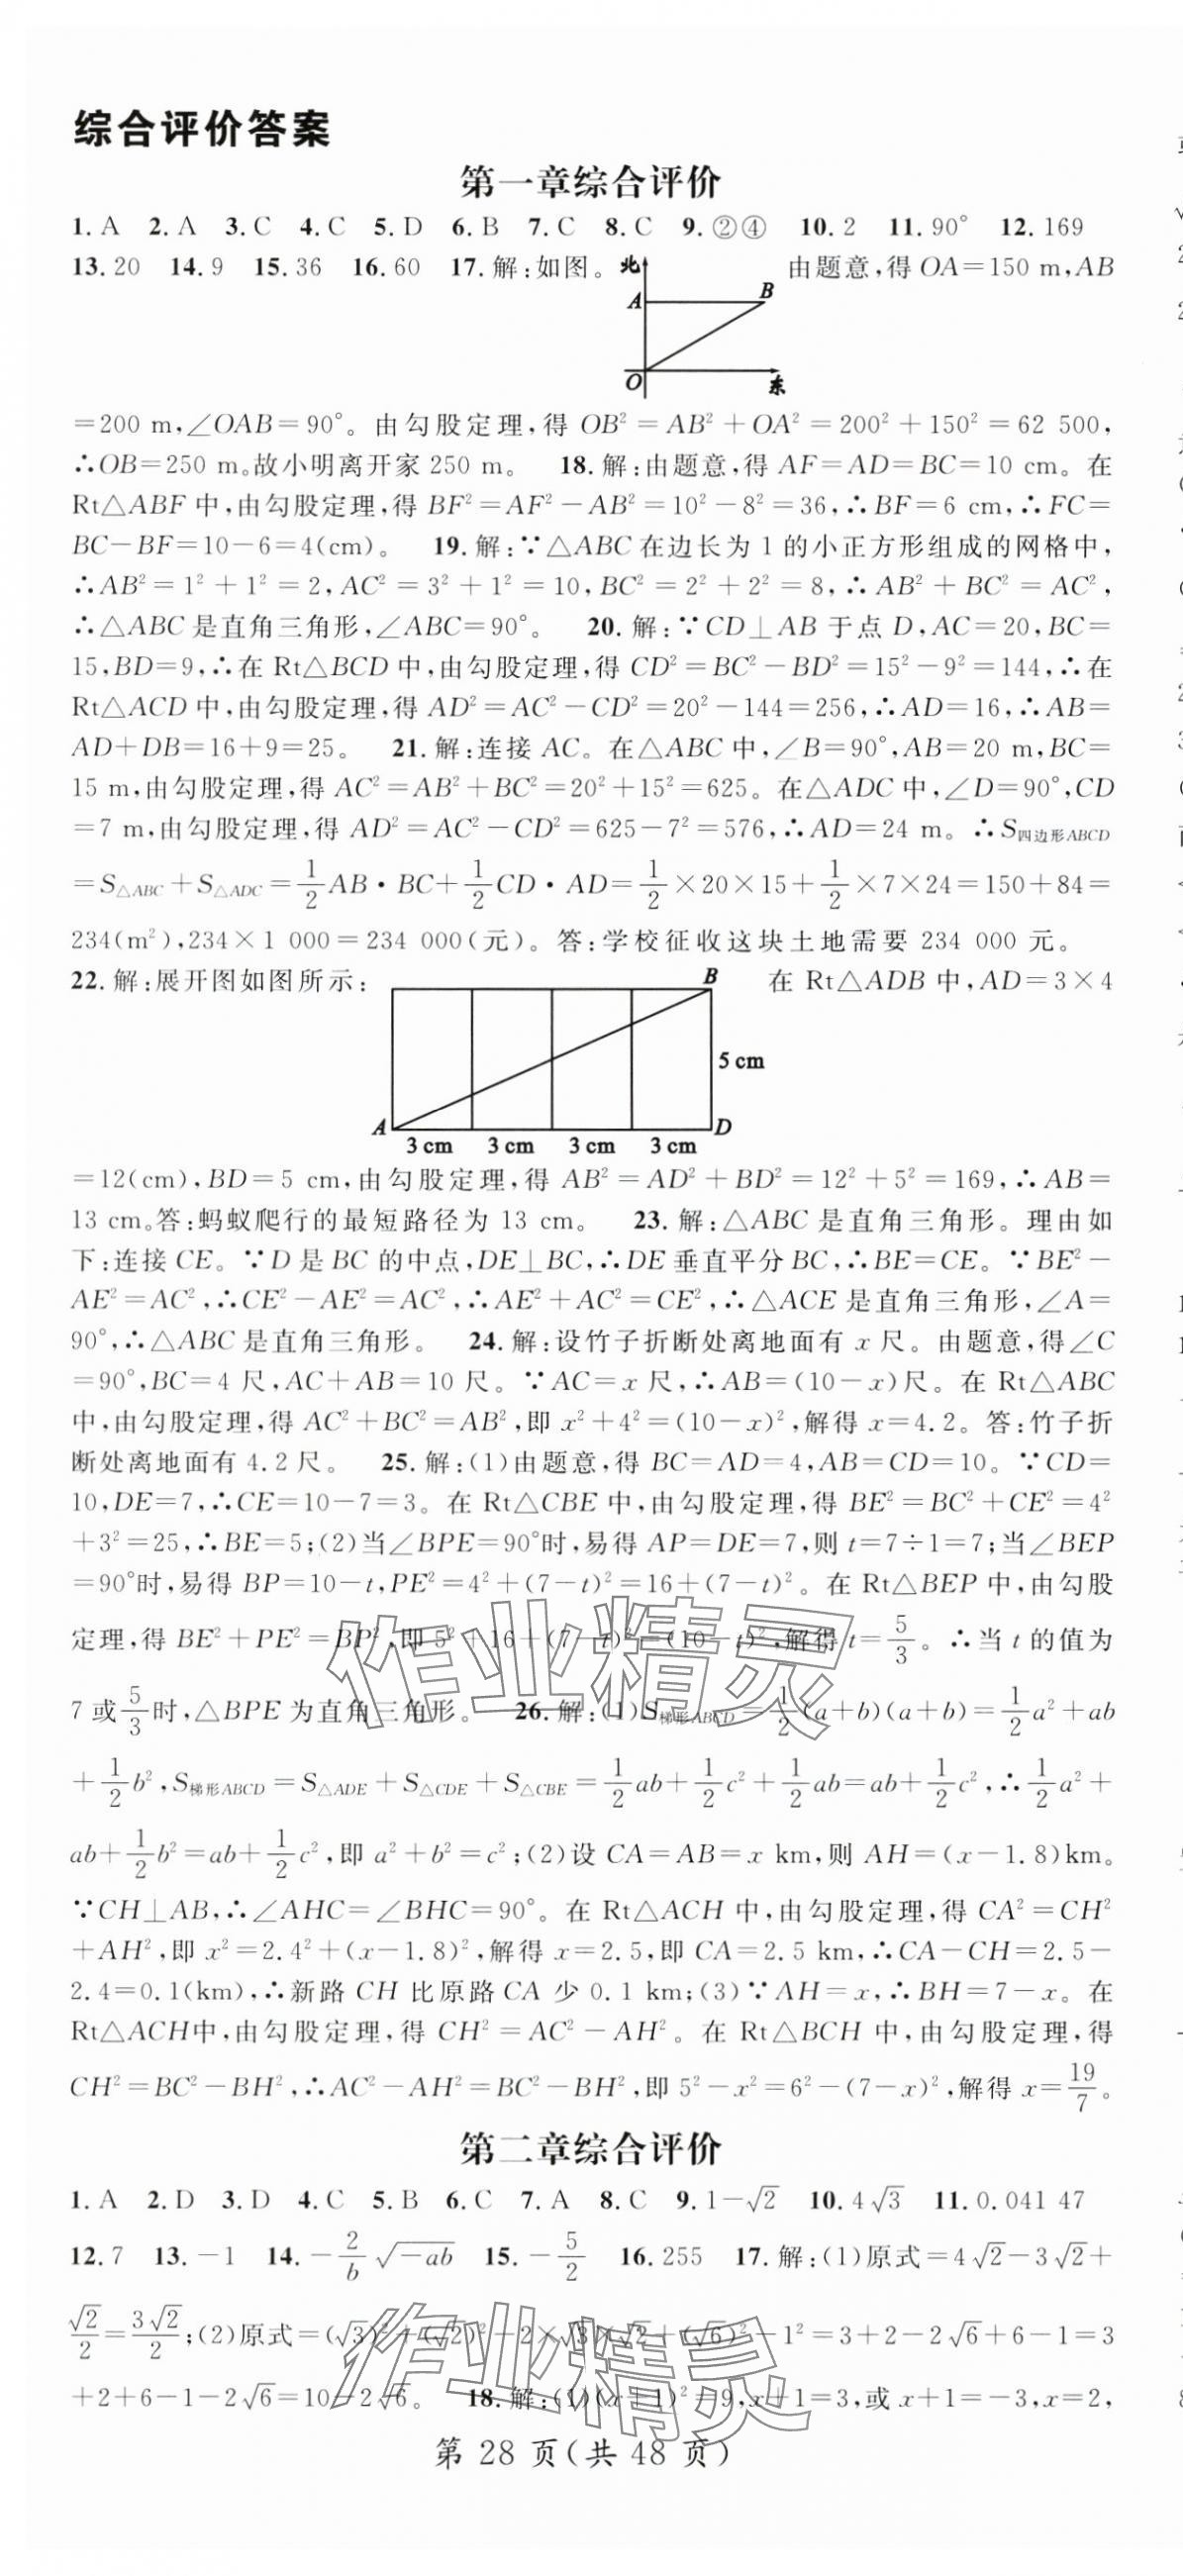 综合评价答案
第一章综合评价
1.A 2.A 3.C 4.C 5.D 6.B 7.C 8.C 9.②④ 10.2 11.90° 12.169
13.20 14.9 15.36 16.60 17.解:如图。 由题意,得 OA=150 m,AB
北
A
B
O
东
=200 m,∠OAB=90°。由勾股定理,得 OB²=AB²+OA²=200²+150²=62 500,
∴OB=250 m。故小明离开家 250 m。 18.解:由题意,得 AF=AD=BC=10 cm。在
Rt△ABF 中,由勾股定理,得 BF²=AF²-AB²=10²-8²=36,∴BF=6 cm,∴FC=
BC-BF=10-6=4(cm)。 19.解:∵△ABC 在边长为 1 的小正方形组成的网格中,
∴AB²=1²+1²=2,AC²=3²+1²=10,BC²=2²+2²=8,∴AB²+BC²=AC²,
∴△ABC 是直角三角形,∠ABC=90°。 20.解:∵CD⊥AB 于点 D,AC=20,BC=
15,BD=9,∴在 Rt△BCD 中,由勾股定理,得 CD²=BC²-BD²=15²-9²=144,∴在
Rt△ACD 中,由勾股定理,得 AD²=AC²-CD²=20²-144=256,∴AD=16,∴AB=
AD+DB=16+9=25。 21.解:连接 AC。在△ABC 中,∠B=90°,AB=20 m,BC=
15 m,由勾股定理,得 AC²=AB²+BC²=20²+15²=625。在△ADC 中,∠D=90°,CD
=7 m,由勾股定理,得 AD²=AC²-CD²=625-7²=576,∴AD=24 m。∴S四边形ABCD
=S△ABC+S△ADC=1/2 AB·BC+1/2 CD·AD=1/2×20×15+1/2×7×24=150+84=
234(m²),234×1 000=234 000(元)。答:学校征收这块土地需要 234 000 元。
22.解:展开图如图所示: 在 Rt△ADB 中,AD=3×4
B
5 cm
A
D
3 cm 3 cm 3 cm 3 cm
=12(cm),BD=5 cm,由勾股定理,得 AB²=AD²+BD²=12²+5²=169,∴AB=
13 cm。答:蚂蚁爬行的最短路径为 13 cm。 23.解:△ABC 是直角三角形。理由如
下:连接 CE。∵D 是 BC 的中点,DE⊥BC,∴DE 垂直平分 BC,∴BE=CE。∵BE²-
AE²=AC²,∴CE²-AE²=AC²,∴AE²+AC²=CE²,∴△ACE 是直角三角形,∠A=
90°,∴△ABC 是直角三角形。 24.解:设竹子折断处离地面有 x 尺。由题意,得∠C
=90°,BC=4 尺,AC+AB=10 尺。∵AC=x 尺,∴AB=(10-x)尺。在 Rt△ABC
中,由勾股定理,得 AC²+BC²=AB²,即 x²+4²=(10-x)²,解得 x=4.2。答:竹子折
断处离地面有 4.2 尺。 25.解:(1)由题意,得 BC=AD=4,AB=CD=10。∵CD=
10,DE=7,∴CE=10-7=3。在 Rt△CBE 中,由勾股定理,得 BE²=BC²+CE²=4²
+3²=25,∴BE=5;(2)当∠BPE=90°时,易得 AP=DE=7,则 t=7÷1=7;当∠BEP
=90°时,易得 BP=10-t,PE²=4²+(7-t)²=16+(7-t)²。在 Rt△BEP 中,由勾股
定理,得 BE²+PE²=BP²,即 5²+16+(7-t)²=(10-t)²,解得 t=5/3。∴当 t 的值为
7 或5/3时,△BPE 为直角三角形。 26.解:(1)S梯形ABCD=1/2(a+b)(a+b)=1/2a²+ab
+1/2b²,S梯形ABCD=S△ADE+S△CDE+S△CBE=1/2ab+1/2c²+1/2ab=ab+1/2c²,∴1/2a²+
ab+1/2b²=ab+1/2c²,即 a²+b²=c²;(2)设 CA=AB=x km,则 AH=(x-1.8)km。
∵CH⊥AB,∴∠AHC=∠BHC=90°。在 Rt△ACH 中,由勾股定理,得 CA²=CH²
+AH²,即 x²=2.4²+(x-1.8)²,解得 x=2.5,即 CA=2.5 km,∴CA-CH=2.5-
2.4=0.1(km),∴新路 CH 比原路 CA 少 0.1 km;(3)∵AH=x,∴BH=7-x。在
Rt△ACH中,由勾股定理,得 CH²=AC²-AH²。在 Rt△BCH 中,由勾股定理,得
CH²=BC²-BH²,∴AC²-AH²=BC²-BH²,即 5²-x²=6²-(7-x)²,解得 x=19/7。
第二章综合评价
1.A 2.D 3.D 4.C 5.B 6.C 7.A 8.C 9.1-√2 10.4√3 11.0.041 47
12.7 13.-1 14.-2/b √-ab 15.-5/2 16.255 17.解:(1)原式=4√2-3√2+
√2/2=3√2/2;(2)原式=(√3)²+(√2)²-2×√3×√2+(√6)²-1²=3+2-2√6+6-1=3
+2+6-1-2√6=10-2√6。 18.解:(1)(x+1)²=9,x+1=3,或 x+1=-3,x=2,
第 28 页(共 48 页)
作业精灵
作业精灵